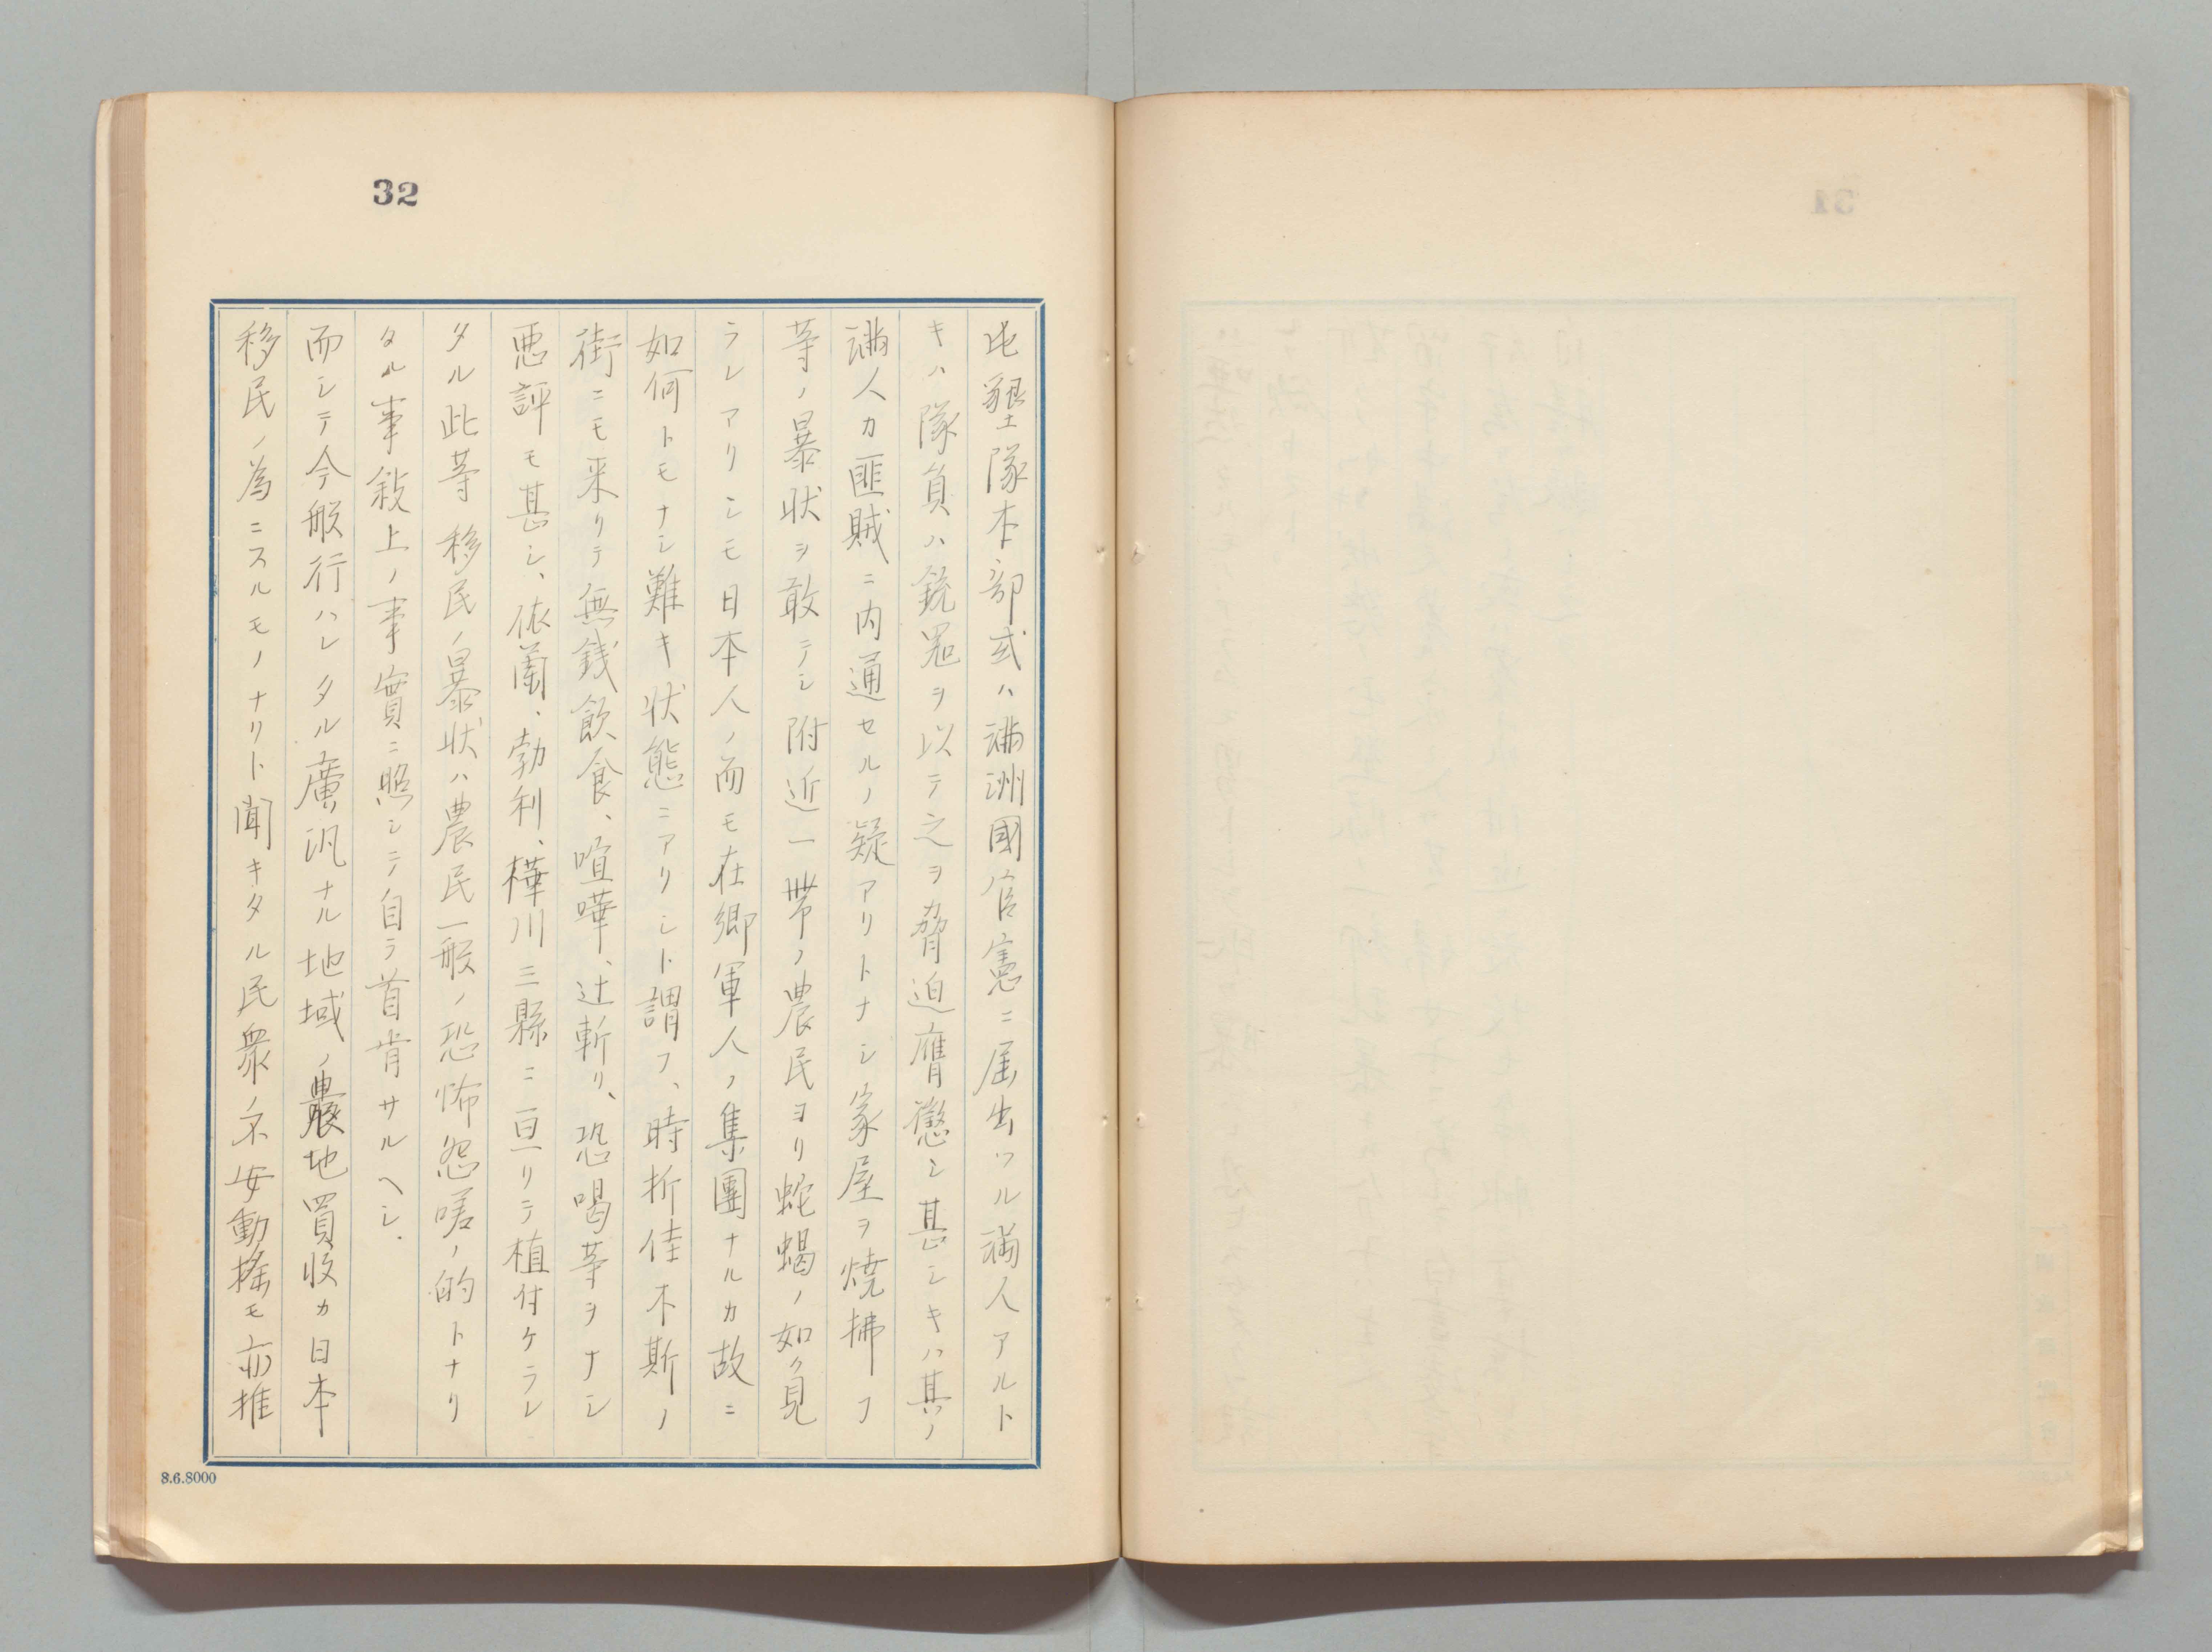 32
屯墾隊本部或ハ満洲國官憲ニ届出ツル満人アルト
キハ隊員ハ銃器ヲ以テ之ヲ脅迫膺懲シ甚シキハ其ノ
満人カ匪賊ニ内通セルノ疑アリトナシ家屋ヲ焼拂フ
等ノ暴状ヲ敢テシ附近一帯ノ農民ヨリ蛇蝎ノ如ク見
ラレアリシモ日本人ノ而モ在郷軍人ノ集團ナルカ故ニ
如何トモナシ難キ状態ニアリシト謂フ、時折佳木斯ノ
街ニモ来リテ無銭飲食、喧嘩、辻斬リ、恐喝等ヲナシ
悪評モ甚シ、依蘭、勃利、樺川三縣ニ亘リテ植付ケラレ
タル此等移民ノ暴状ハ農民一般ノ恐怖怨嗟ノ的トナリ
タル事敍上ノ事實ニ照シテ自ラ首肯サルヘシ.
而シテ今般行ハレタル廣汎ナル地域ノ農地買収カ日本
移民ノ為ニスルモノナリト聞キタル民衆ノ不安動揺モ亦推
8.6.8000